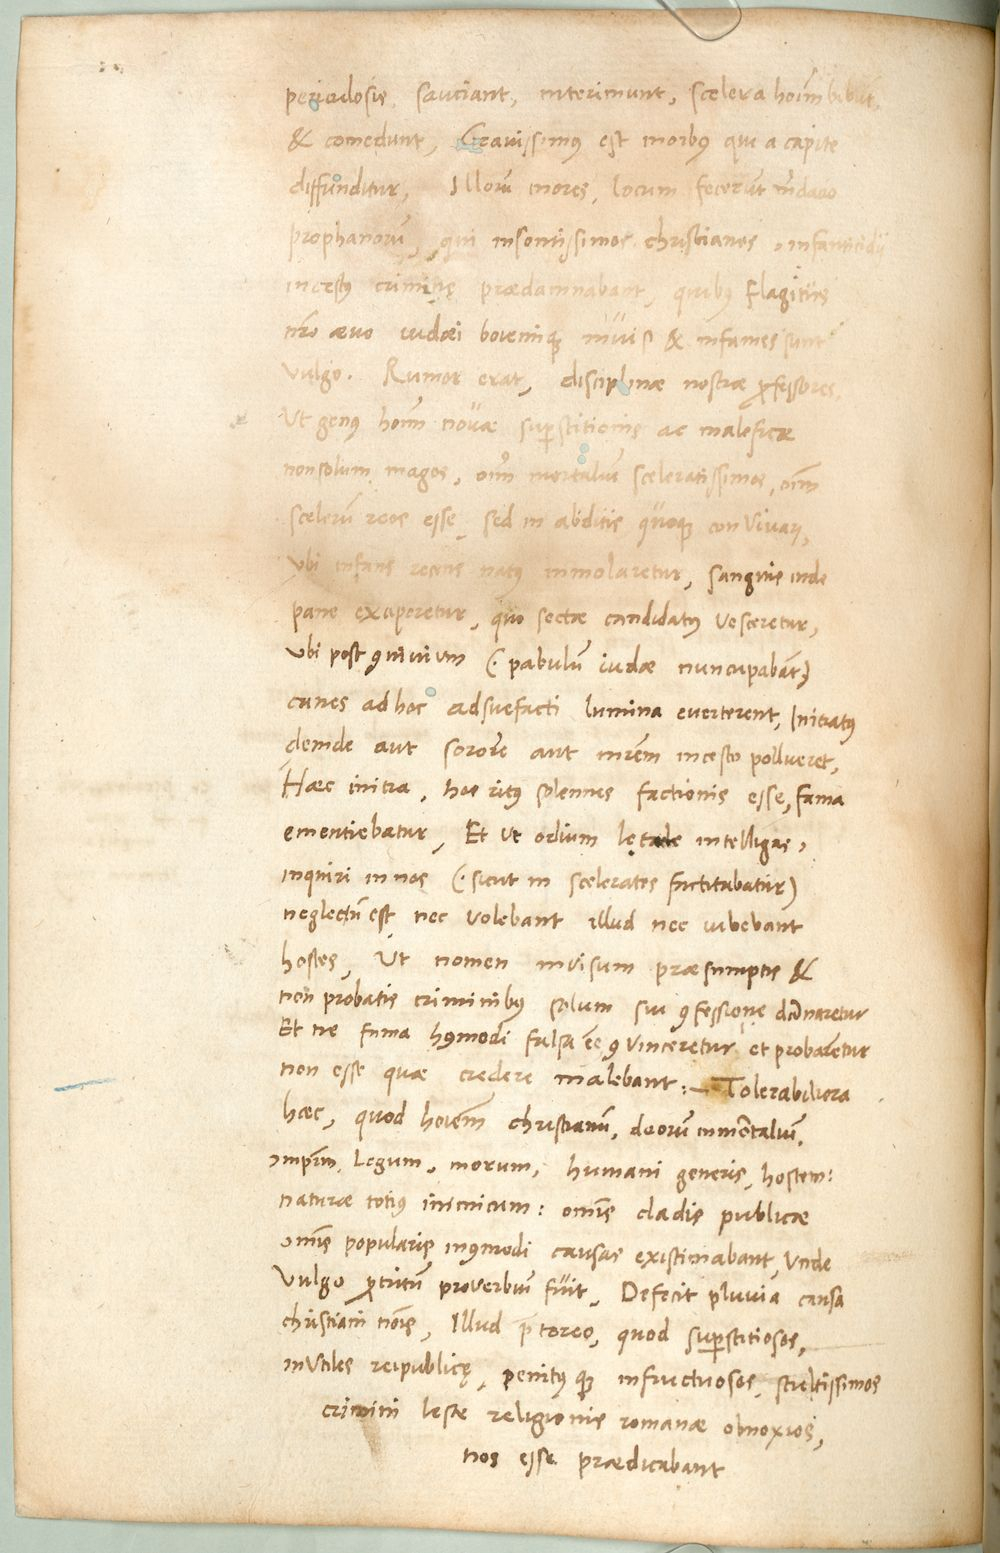 periculosis, sauciant, interimunt, scelera hoīm bibūt,
& comedunt, Grauissimꝰ est morbꝰ qui a capite
diffunditur, Illorū mores, locum fecerūt mēdacio
prophanorū, qui insontissimos christianos, infanticidij
incestꝰ criminę prædamnabant, quibꝰ flagitiis
nr̄o æuo iudæi boiemiqꝫ inuisi & infames sunt
vulgo. Rumor erat, disciplinæ nostræ ꝓfessores,
Ut genꝰ hoīm nouæ suꝑstitionis ac maleficæ
non solum magos, oīm mortaliū sceleratissimos, oīm
scelerū reos esse, sed in abditis quoqꝫ conviuari,
vbi infans recens natꝰ immolaretur, sanguis inde
pane exciperetur, quo sectæ candidatꝰ vesceretur,
vbi post ꝯuiuium (: pabulū iudæ nuncupabāt)
canes ad hoc adsuefacti lumina euerterent, Initiatꝰ
deinde aut sororē aut mr̄em incesto pollueret,
Hæc initia, hos ritꝰ solennes factionis esse, fama
ementiebatur, Et vt odium letale intelligas,
inquiri in nos (: sicut in sceleratos factitabatur)
neglectū est, nec volebant illud nec iubebant
hostes, Ut nomen inuisum præsumptis &
non probatis criminibꝰ solum sui ꝯfessione dānaretur
Et ne fama hꝰmodi falsa eē ꝯvinceretur, et probarētur
non esse quæ credere malebant :— Tolerabiliora
hæc, quod hoiēm christianū, deorū immortaliū,
impm̄, Legum, morum, humani generis, hostem:
naturæ totiꝰ inimicum: omīs cladis publicæ
omīs popularis incōmodi causas existimabant, Vnde
Vulgo ꝑtritū proverbiū fuit, Defecit pluuia causa
christiani noīs, Illud p̄tereo, quod suꝑstitiosos,
inVtiles reipublicę, penitꝰ qꝫ infructuosos, stultissimos
crimini lesæ religionis romanæ obnoxios,
nos esse prædicabant